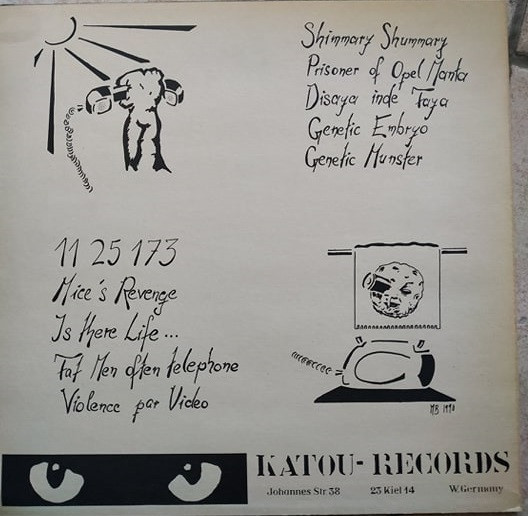 Shimmary Shummary
Prisoner of Opel Manta
Disaya inde Faya
Genetic Embryo
Genetic Munster
11 25 173
Mice's Revenge
Is there Life ...
Fat Men often telephone
Violence par Video
MB 1990
KATOU-RECORDS
Johannes Str 38 23 Kiel 14 W. Germany